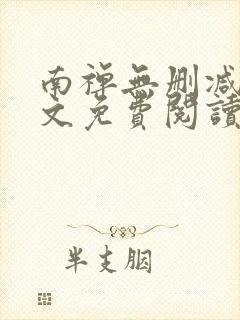 南禅無删减
文免費閱讀
半支胭